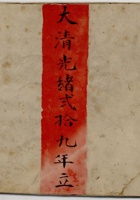 大清光緒弍拾九年立